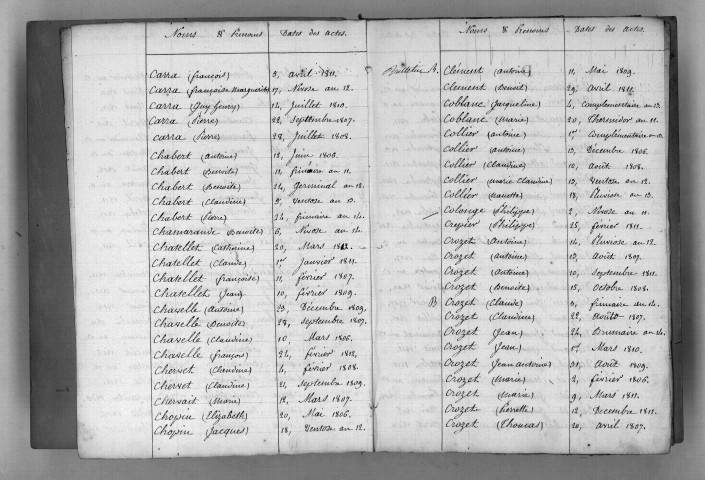 Noms & Prenoms Dates des actes.
Carra (françois) 5, avril 1811.
Carra (françoise Marguerite) 17, Nivose an 12.
Carra (Guy henry) 14, Juillet 1810.
Carra (Pierre) 22, Septembre 1807.
Carra (Pierre) 28, Juillet 1808.
Chabert (antoine) 12, Juin 1806.
Chabert (Benoite) 11, frimaire an 11.
Chabert (Benoite) 24, Germinal an 12.
Chabert (Claudine) 9, Ventose an 13.
Chabert (Pierre) 24, frimaire an 14.
Chamarande (Benoite) 6, Nivose an 14.
Chatellet (Catherine) 20, Mars 1812.
Chatellet (Claude) 1er Janvier 1811.
Chatellet (françoise) 11, février 1807.
Chatellet (Jean) 10, février 1809.
Chavelle (Antoine) 29, Décembre 1809.
Chavelle (Benoite) 28, Septembre 1807.
Chavelle (Claudine) 10, Mars 1806.
Chavelle (françois) 24, février 1812.
Chervet (Claudine) 4, février 1808.
Chervet (Claudine) 21, Septembre 1809.
Chervait (Marie) 12, Mars 1807.
Chopin (Elizabeth) 20, Mai 1806.
Chopin (Jacques) 18, Ventose an 12.
Noms & Prenoms Dates des actes.
Bulletin A. Clément (antoine) 11, Mai 1809.
Clement (Benoit) 29, avril 1811.
Coblanc (Jacqueline) 4, Complementaire an 13.
Coblanc (Marie) 20, Thermidor an 11.
Collier (antoine) 1er Complémentaire an
Collier (antoine) 13, Décembre 1806.
Collier (Claudine) 10, août 1808.
Collier (Marie Claudine) 13, Ventose an 12.
Collier (Nanette) 18, Pluviose an 13.
Colonge (Philippe) 2, Nivose an 11.
Crepier (Philippe) 25, février 1811.
Crozet (Antoine) 14, Pluviose an 12.
Crozet (antoine) 19, août 1807.
Crozet (Antoine) 10, Septembre 1811.
Crozet (Benoite) 15, Octobre 1808.
B Crozet (Claude) 3, frimaire an 14.
Crozet (Claudine) 22, Août 1807.
Crozet (Jean) 24, Brumaire an 14.
Crozet (Jean) 1er Mars 1810.
Crozet (Jean antoine) 31, Août 1809.
Crozet (Marie) 2, février 1806.
Crozet (Marie) 9, Mars 1811.
Crozet (Pierrette) 12, Décembre 1811.
Crozet (Thomas) 20, avril 1807.